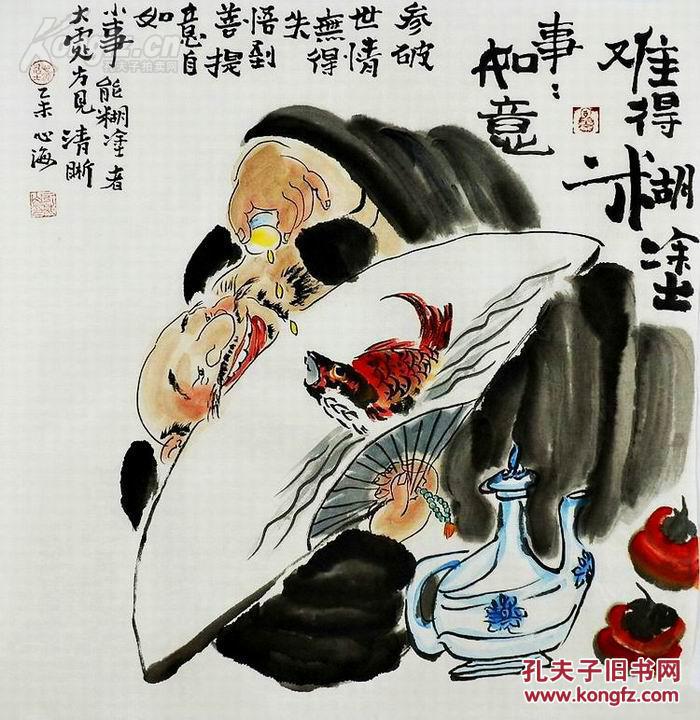 难得糊塗
事:
如意
参破
世情
無得
失
悟到
菩提
意自
如
小事能糊塗者
大處方见清晰
乙未心海
孔夫子旧书网
www.kongfz.com